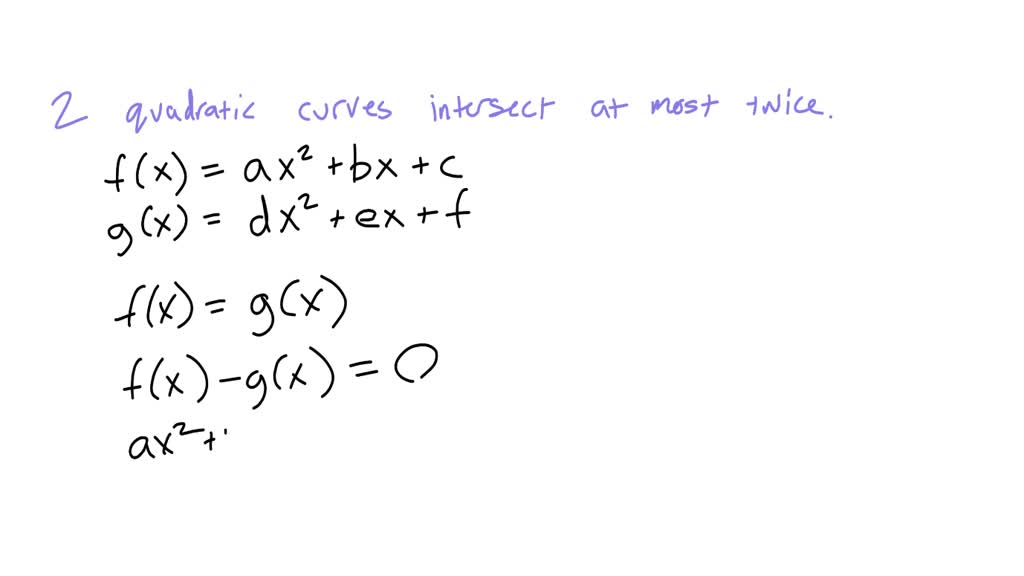 2 quadratic curves intersect at most twice.
f(x) = ax² + bx + c
g(x) = dx² + ex + f
f(x) = g(x)
f(x) - g(x) = 0
ax² +